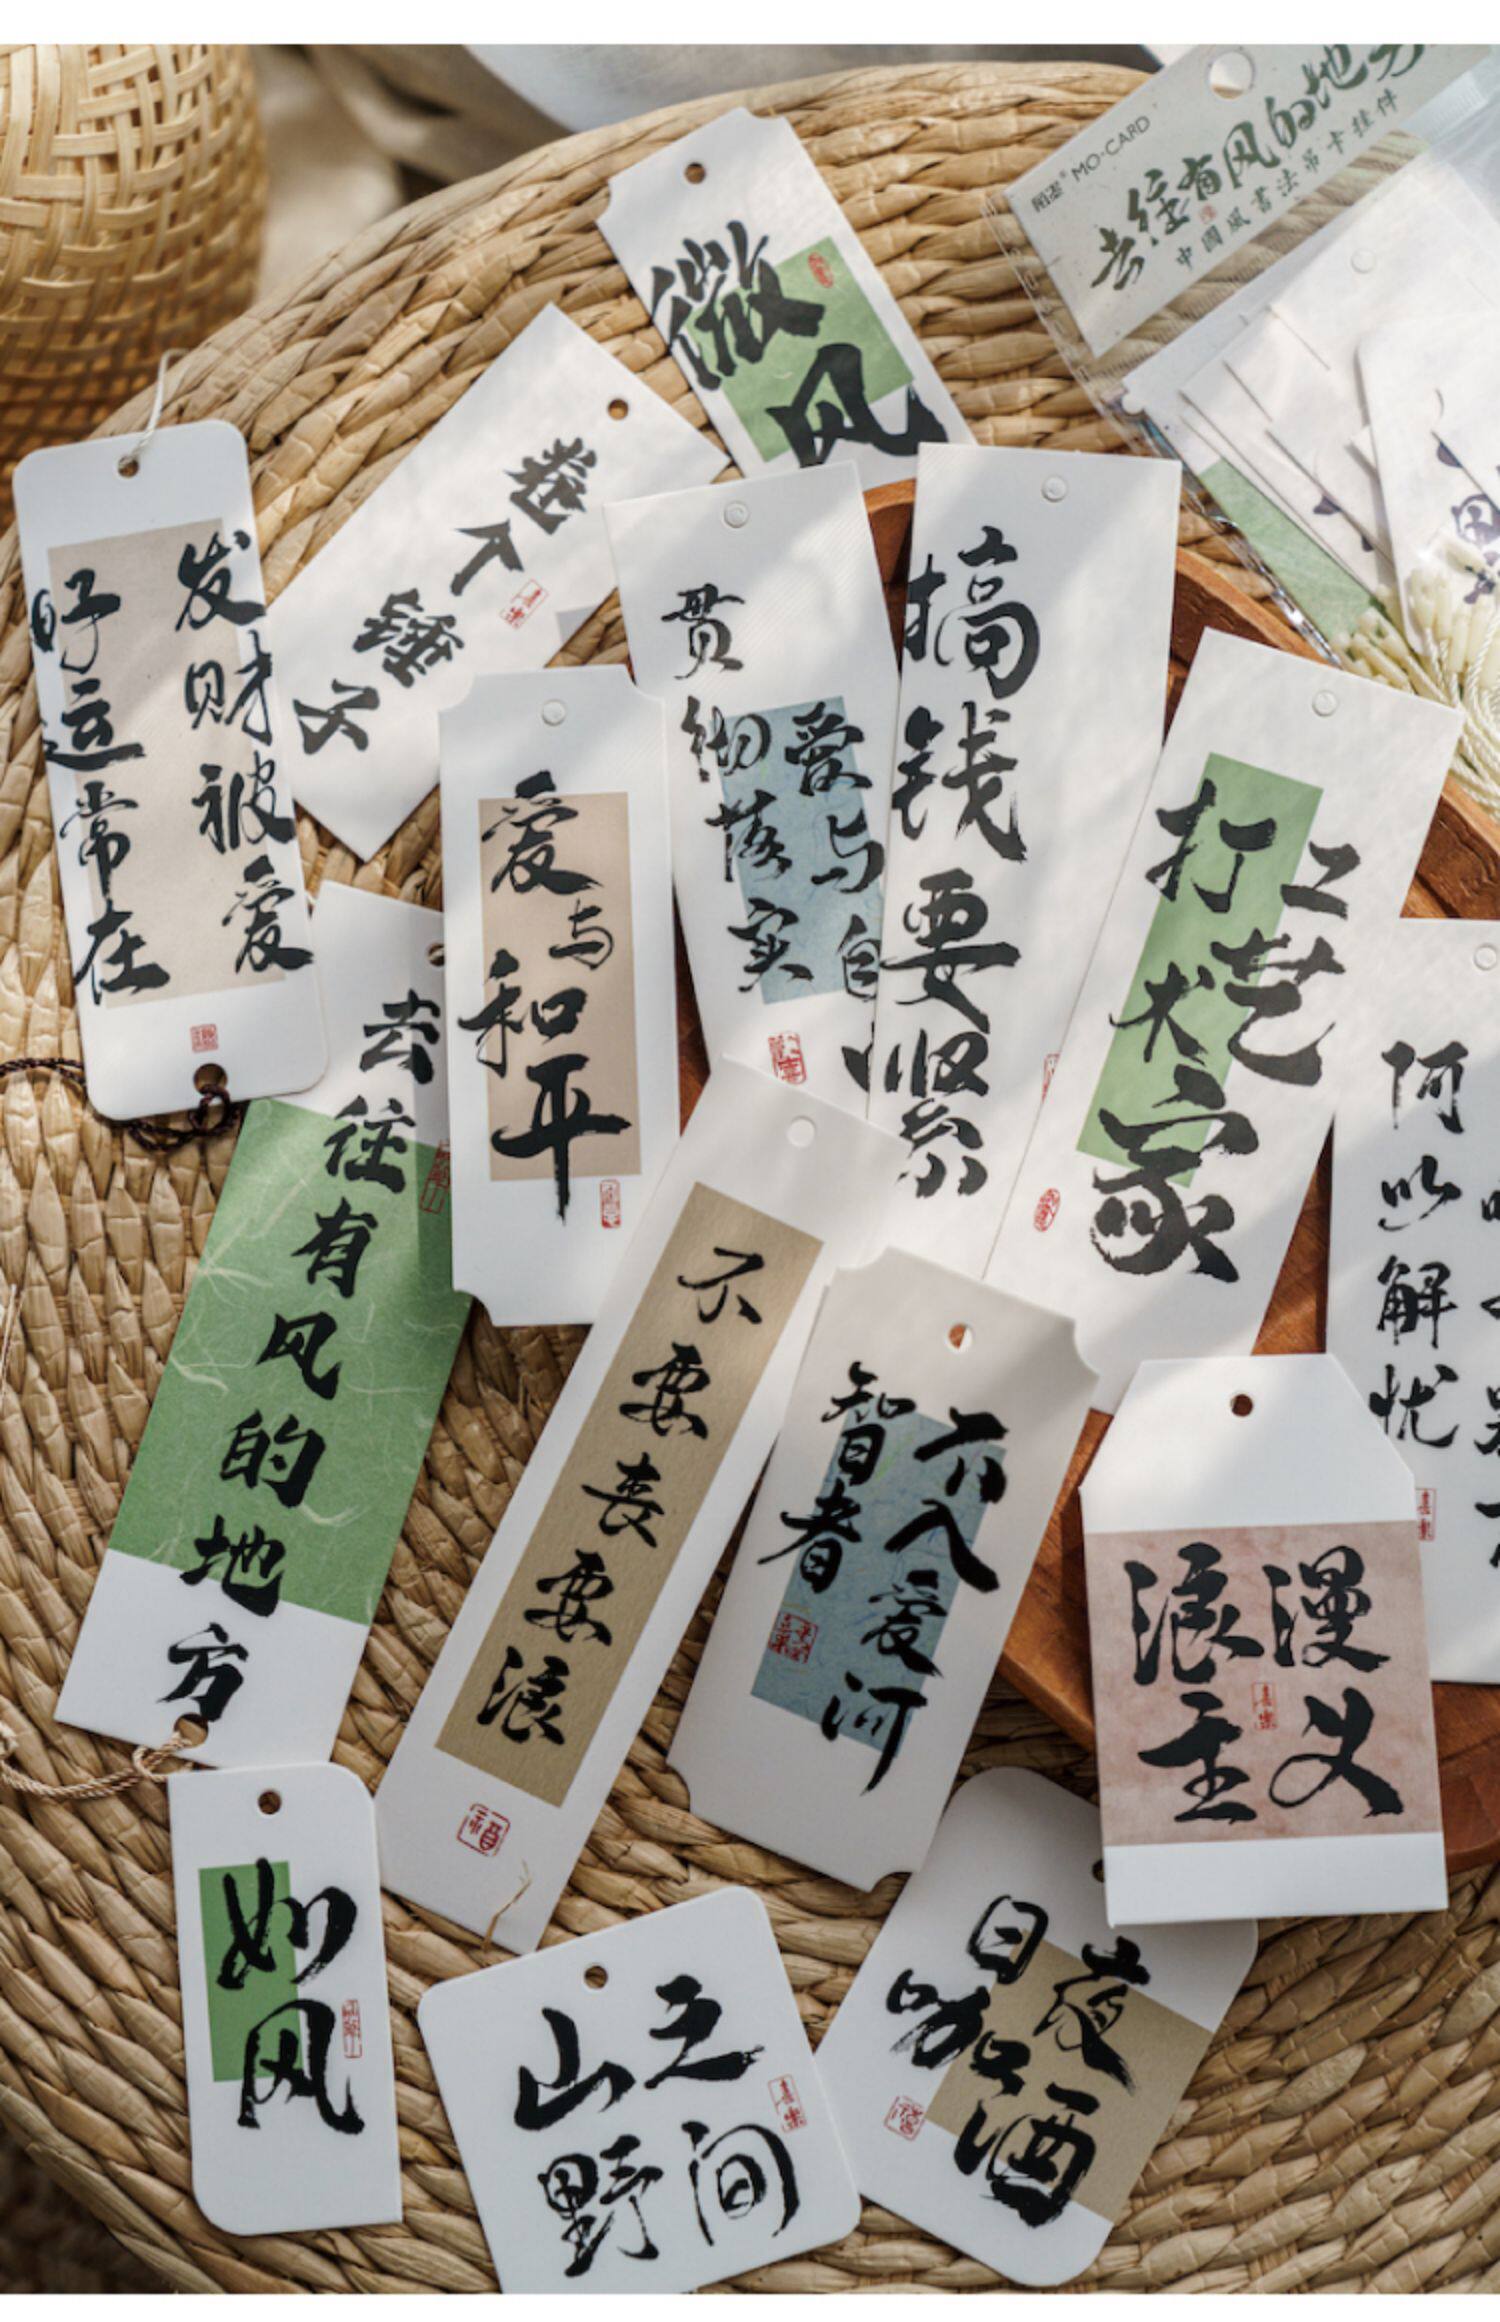 陌墨® MO·CARD
去往有风的地方
中國風書法吊卡挂件
微风
卷个锤子
发财被爱
好运常在
贯彻落实
爱与自
搞钱要紧
打工
艺术家
爱与和平
去往有风的地方
不要丧要浪
智者
不入爱河
阿
以解忧
浪漫
主义
如风
山
之
野
间
日咖
夜酒